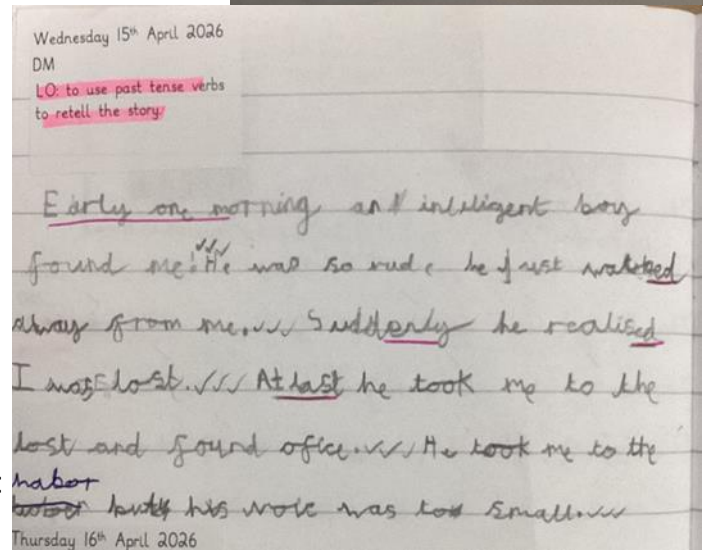 Wednesday 15th April 2026
DM
LO: to use past tense verbs
to retell the story.
Early one morning an inteligent boy
found me! He was so rude he just walked
away from me. Suddenly he realised
I was lost. At last he took me to the
lost and found office. He took me to the
habor
but his was too small.
Thursday 16th April 2026